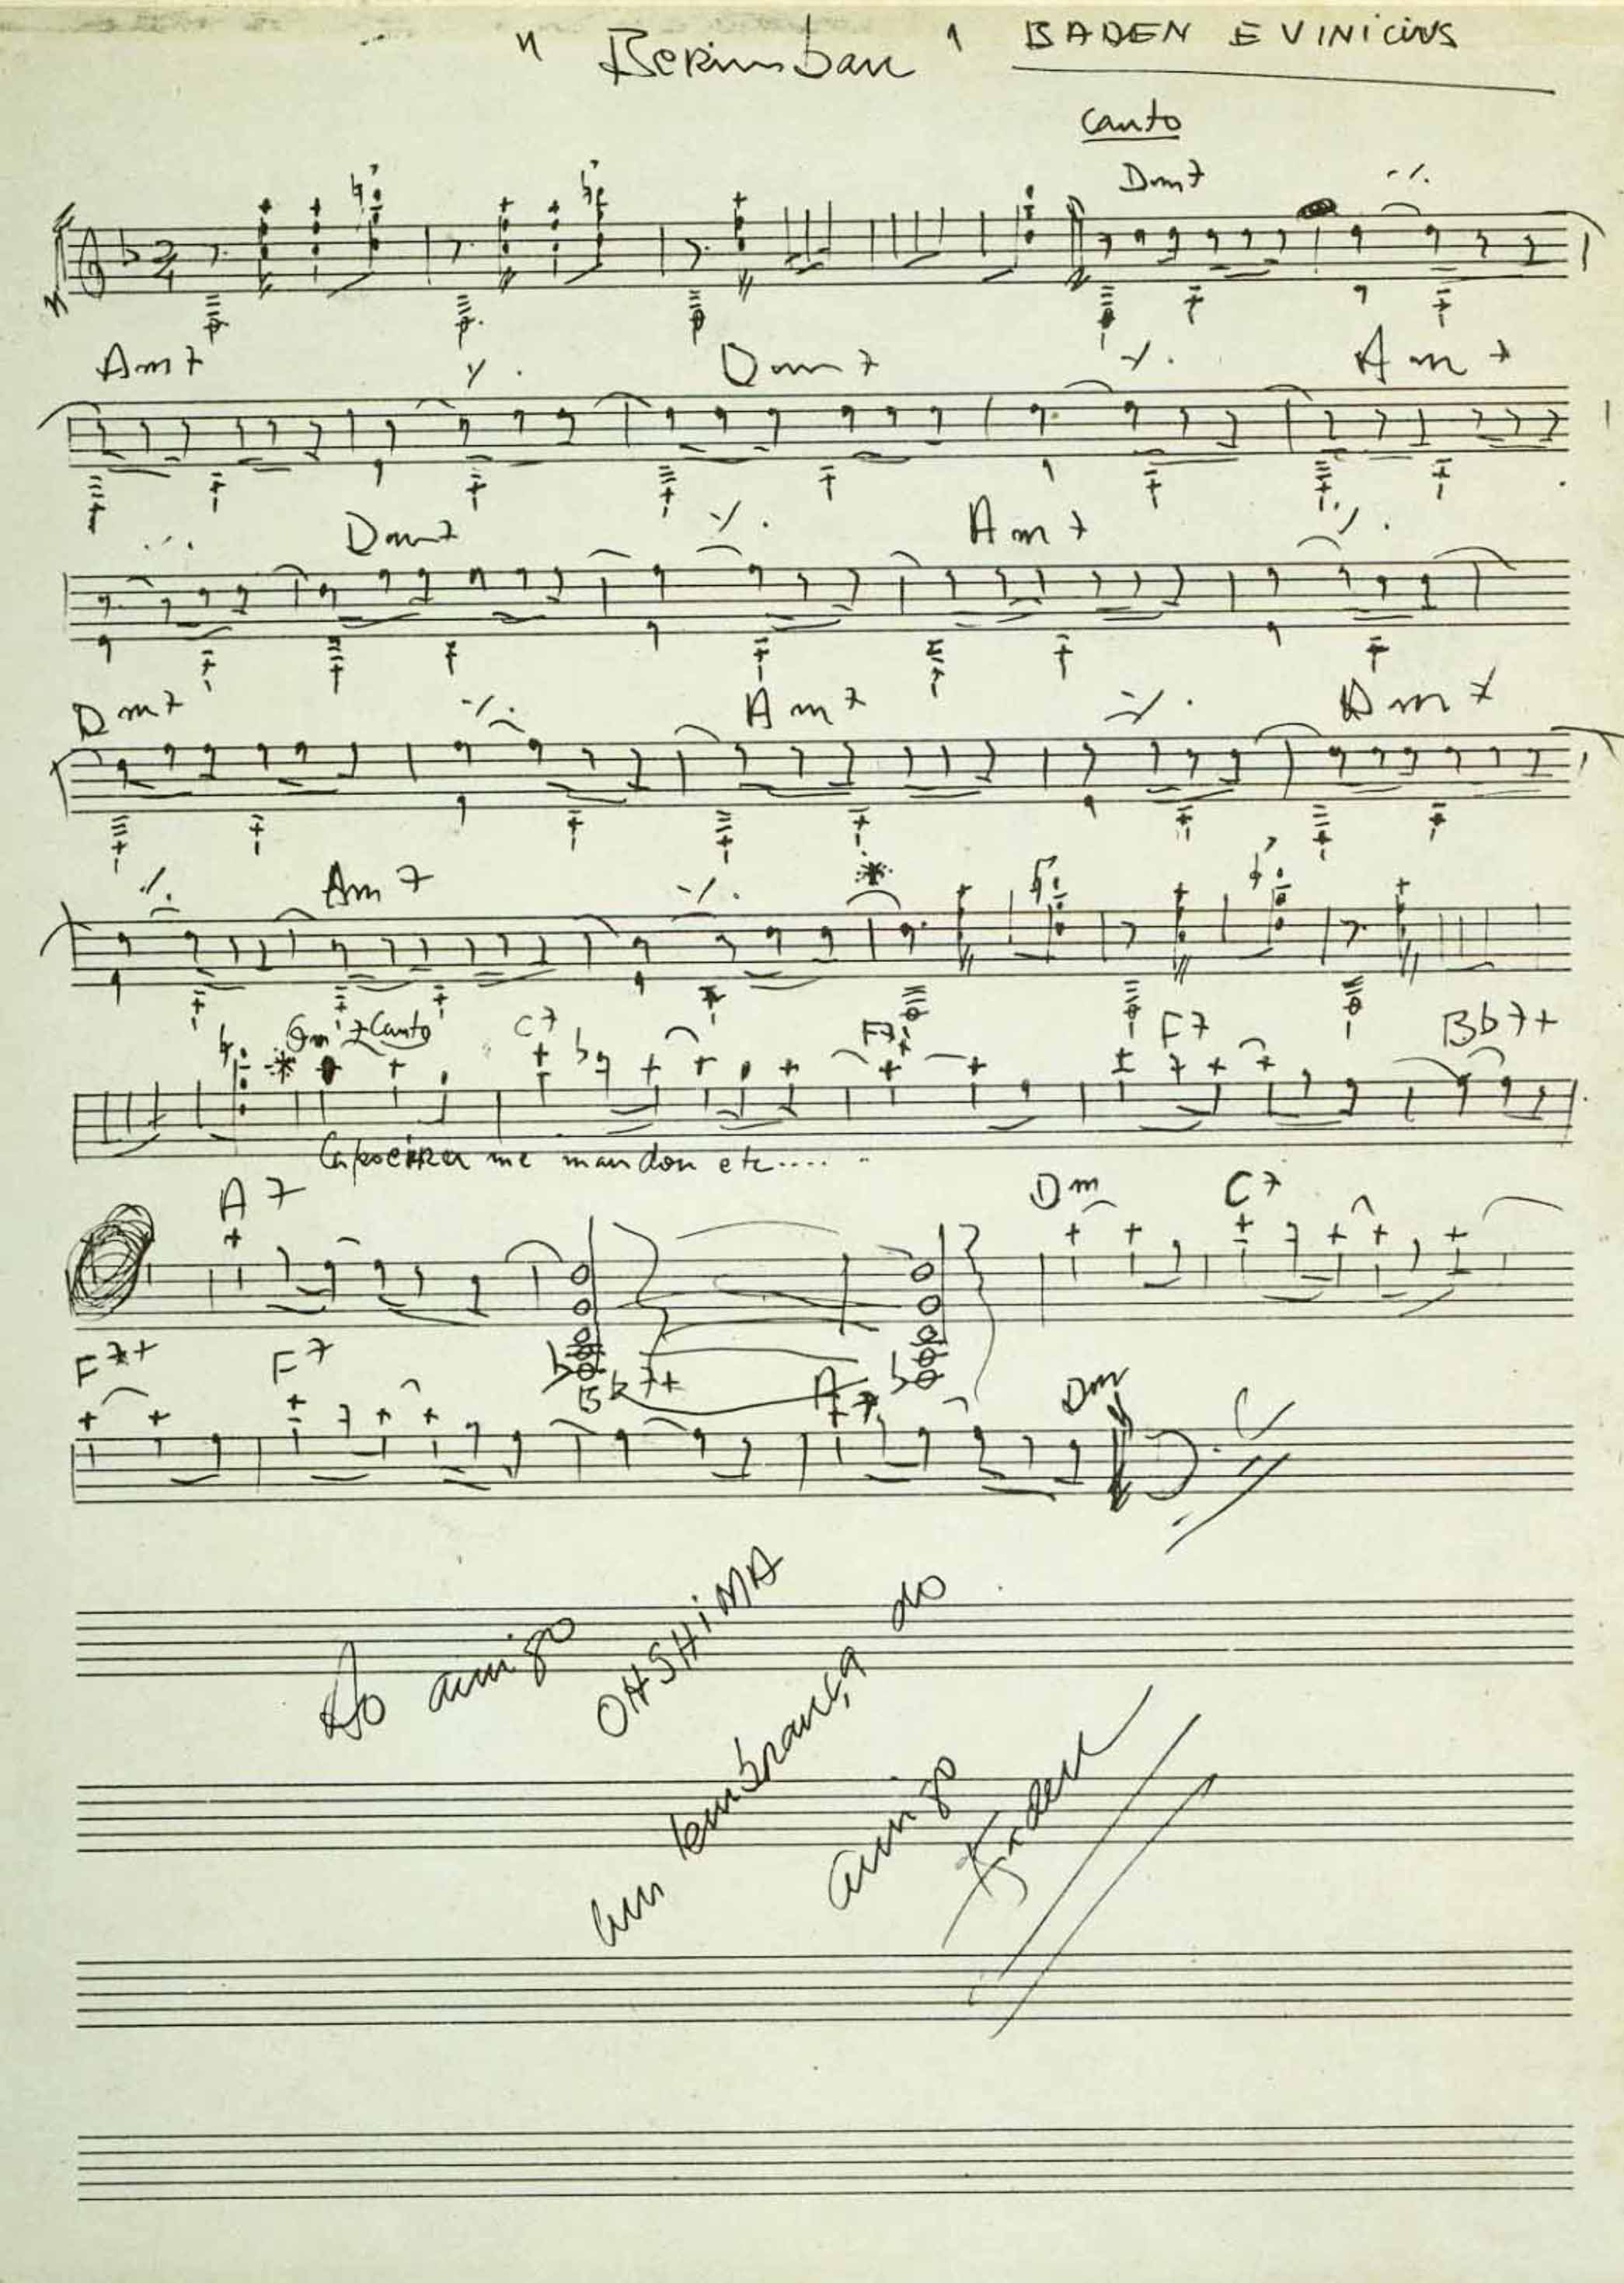 "Berimbau" BADEN E VINICIUS
Canto
Dm7 ٪
Am7 ٪ Dm7 ٪ Am7
٪ Dm7 ٪ Am7 ٪
Dm7 ٪ Am7 ٪ Dm7
٪ Am7 ٪ *
* Gm7 Canto C7 F7+ F7 Bb7+
Capoeira me mandou etc......
A7 Dm C7
F7+ F7 Bb7+ A7 Dm
D.C
Ao amigo
OHSHIMA
um lembrança do
amigo
Baden